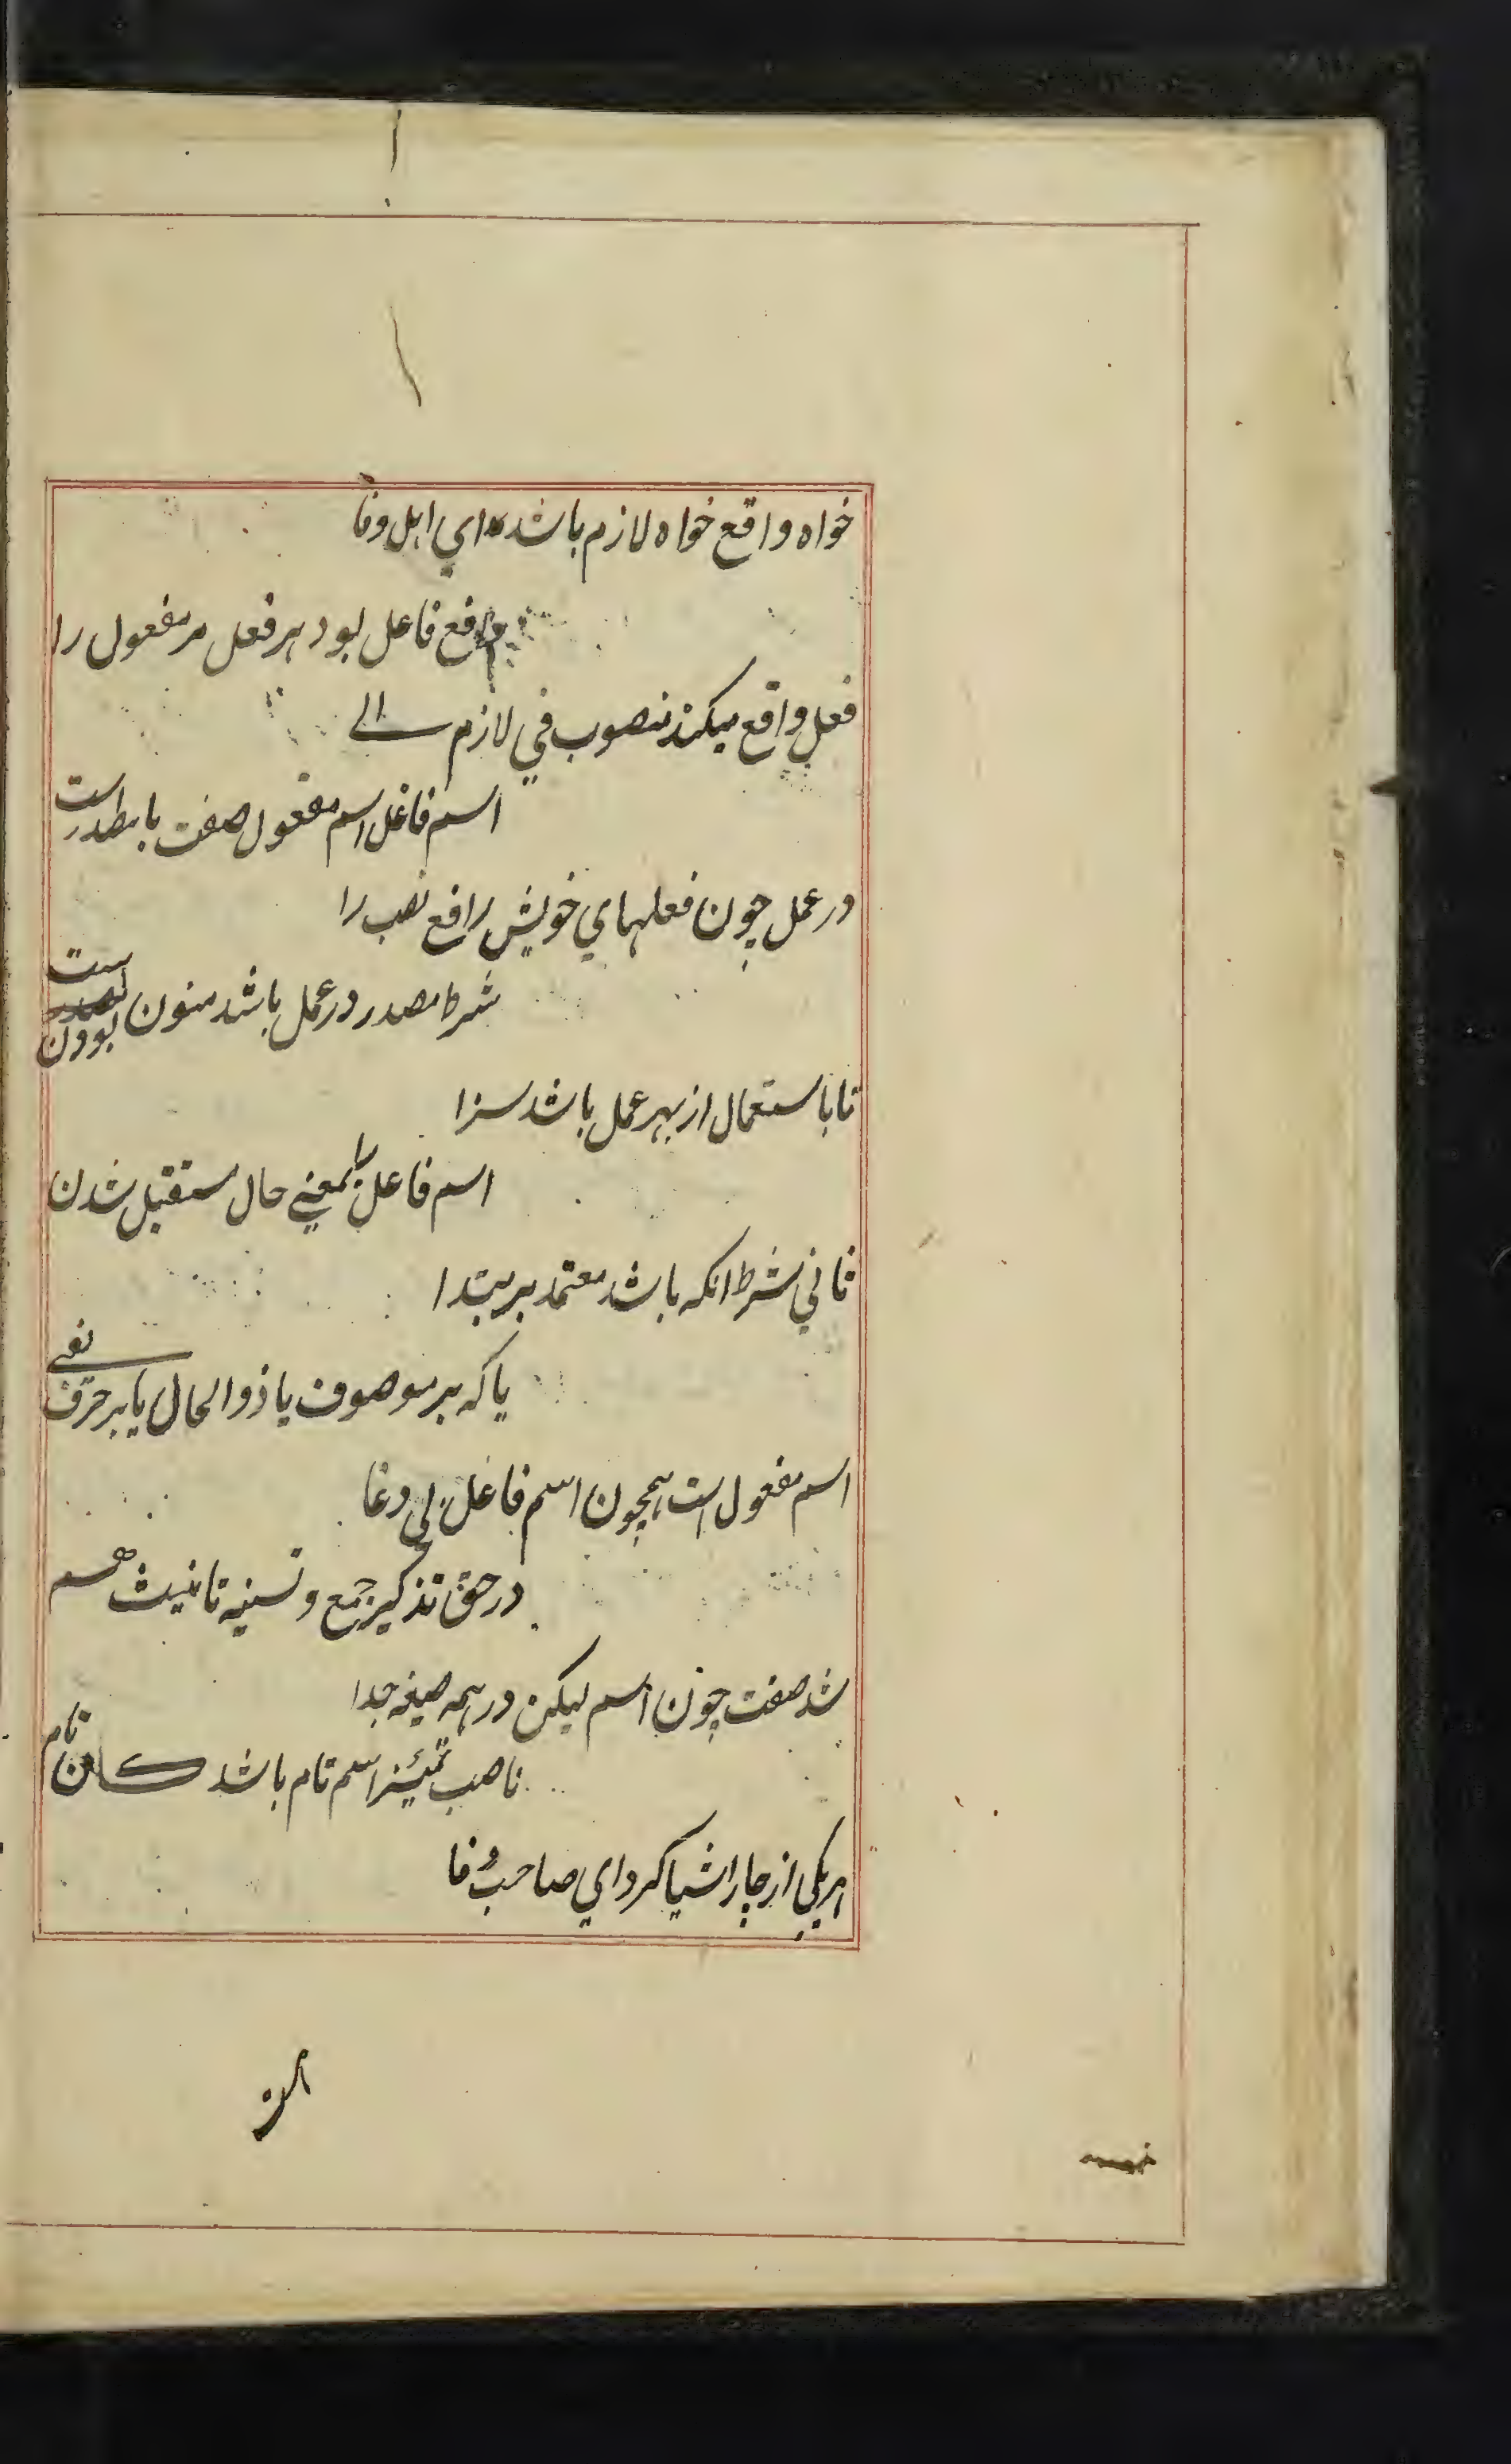 خواه واقع خواه لازم باشد ای اهل وفا
رافع فاعل بود هر فعل مر مفعول را
فعل واقع میکند منصوب فی لازم
اسم فاعل اسم مفعول صفت با مصدرست
در عمل چون فعلهای خویش رافع نصب را
شرط مصدر در عمل باشد منون بودن ست
تا باستعمال از بهر عمل باشد سزا
اسم فاعل را بمعنی حال مستقبل شدن
ثانی شرط انکه باشد معتمد بر مبتدا
یا که بر موصوف یا ذوالحال یا بر حرف نفی
اسم مفعول است همچون اسم فاعل بی دغا
در حق تذکیر جمع و تسنیه تانیث هم
شد صفت چون اسم لیکن در همه صیغه جدا
ناصب تمیز اسم تام باشد کان تام
هر یکی از چار اشیا کرد ای صاحب وفا